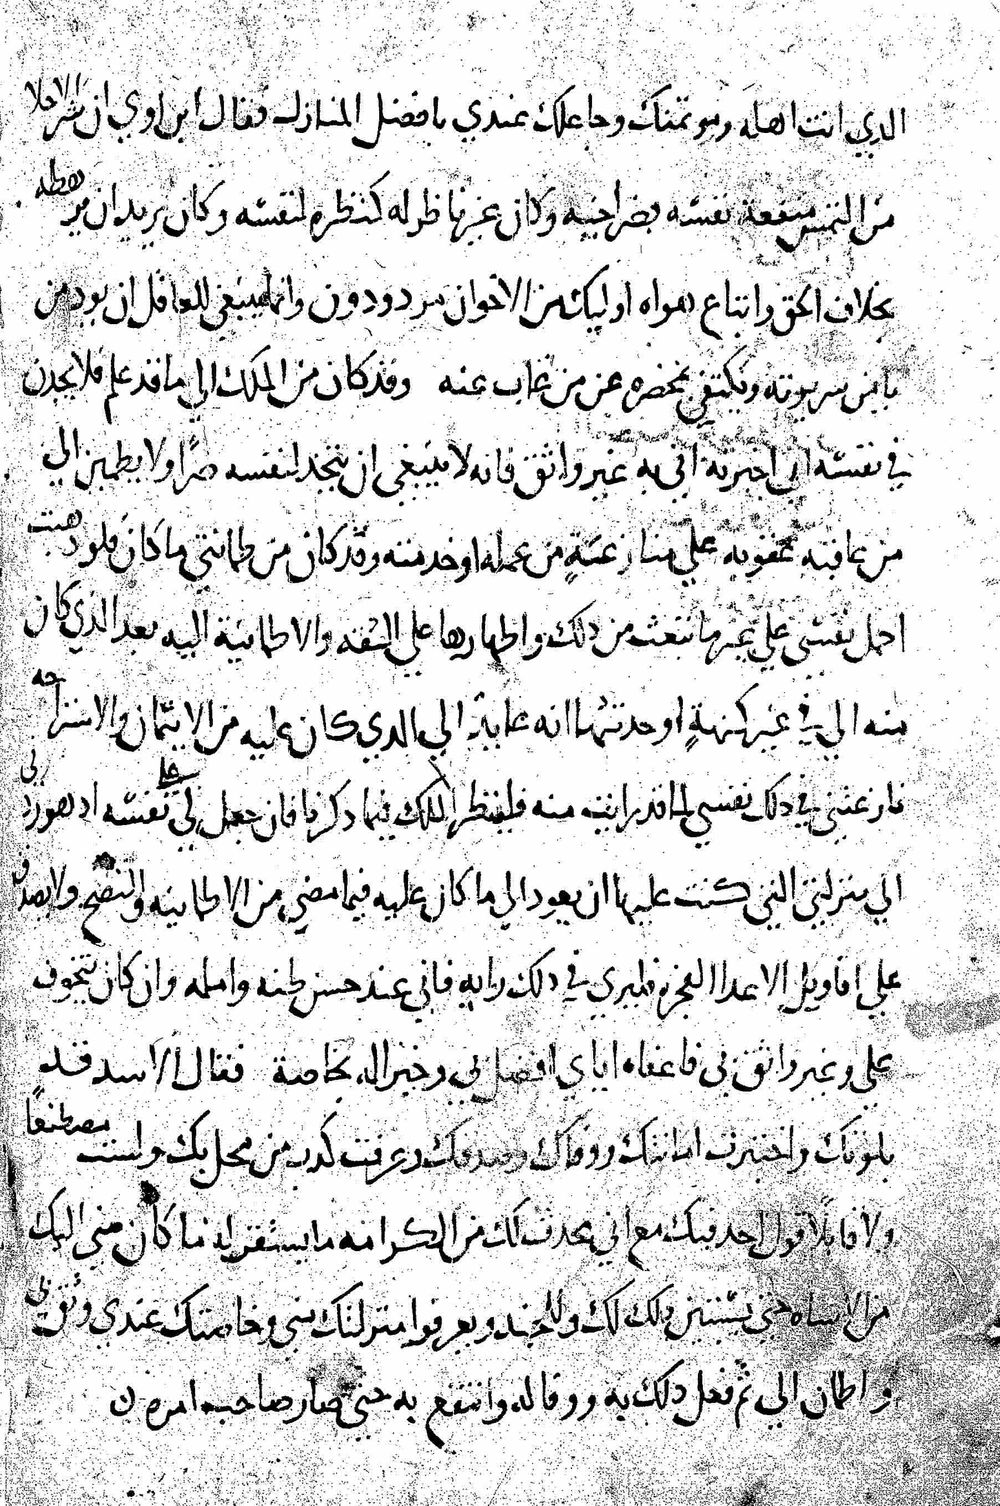 الدي انت اهله وموتمنك وجاعلك عندي بافضل المنازل فقال ابن اوي ان شر الاخلا
من التمس منفعة نفسه بضر اخيه وكان غير ناظر له كنظره لنفسه وكان يريد ان يرضيه
بخلاف الحق واتباع هواه اوليك من الاخوان مردودون وانما ينبغي للعاقل ان يود من
يامن سريرته ويكتفي بمحضره عن من غاب عنه وقد كان من الملك الي ما قد علم فلا يجدن
في نفسه ان اخبرته اني به غير واثق فانه لا ينبغي ان يتخذ لنفسه ولا يطمين الي
من عاقبته عقوبه علي من عمله او خدمته وقد كان من طمانتي ما كان فلو دهبت
احمل نفسي علي غير ما تنعث من دلك واظهارها علي الثقه والاطمانية اليه بعد الذي كان
منه الي في غير كنهة او حدثتها انه عايد الي الدي كان عليه من الايتمان والاستراحه
نازعتني في دلك نفسي لما قد رايت منه فلينظر الملك فيما دكرنا فان جعل لي علي نفسه اد هو ردني
الي منزلتي التي كنت عليها ان يعود الي ما كان عليه فيما مضي من الاطمانينه والنصح ولا يصدق
علي اقاويل الاعدا الفجره فليري في دلك رايه فاني عند حسن ظنه وامله وان كان يتخوف
علي وغير واثق بي فاعفاه اياي افضل بي وخير اله بخاصة فقال الاسد قد
بلوتك واختبرت امانتك ووفاك وصدقك وعرفت كدب من محل بك ولست مصطنعًا
ولا قابلًا قول احد فيك مع اني محدث لك من الكرامه ما يستقر له ما كان مني اليك
من الاساه حتي يستبين دلك لك وللجند ويعرفوا منزلتك مني وخاصتك عندي وثق بي
واطمان الي ثم فعل دلك به ووفا له وانتفع به حتي صار صاحب امره ن